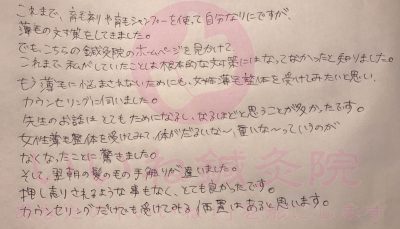 これまで、育毛剤や育毛シャンプーを使って自分なりにですが、
薄毛の対策をしてきました。
でも、こちらの鍼灸院のホームページを見かけて、
これまで私がしていたことは根本的な対策にはなってなかったと知りました。
もう薄毛に悩まされないためにも、女性薄毛整体を受けてみたいと思い、
カウンセリングに伺いました。
先生のお話はとてもためになるし、なるほどと思うことが多かったです。
女性薄毛整体を受けてみて、体がだるいな～、重いな～っていうのが
なくなったことに驚きました。
そして、翌朝の髪のもの手触りが違いました。
押し売りされるような事もなく、とても良かったです。
カウンセリングだけでも受けてみる価値はあると思います。
鍼灸院